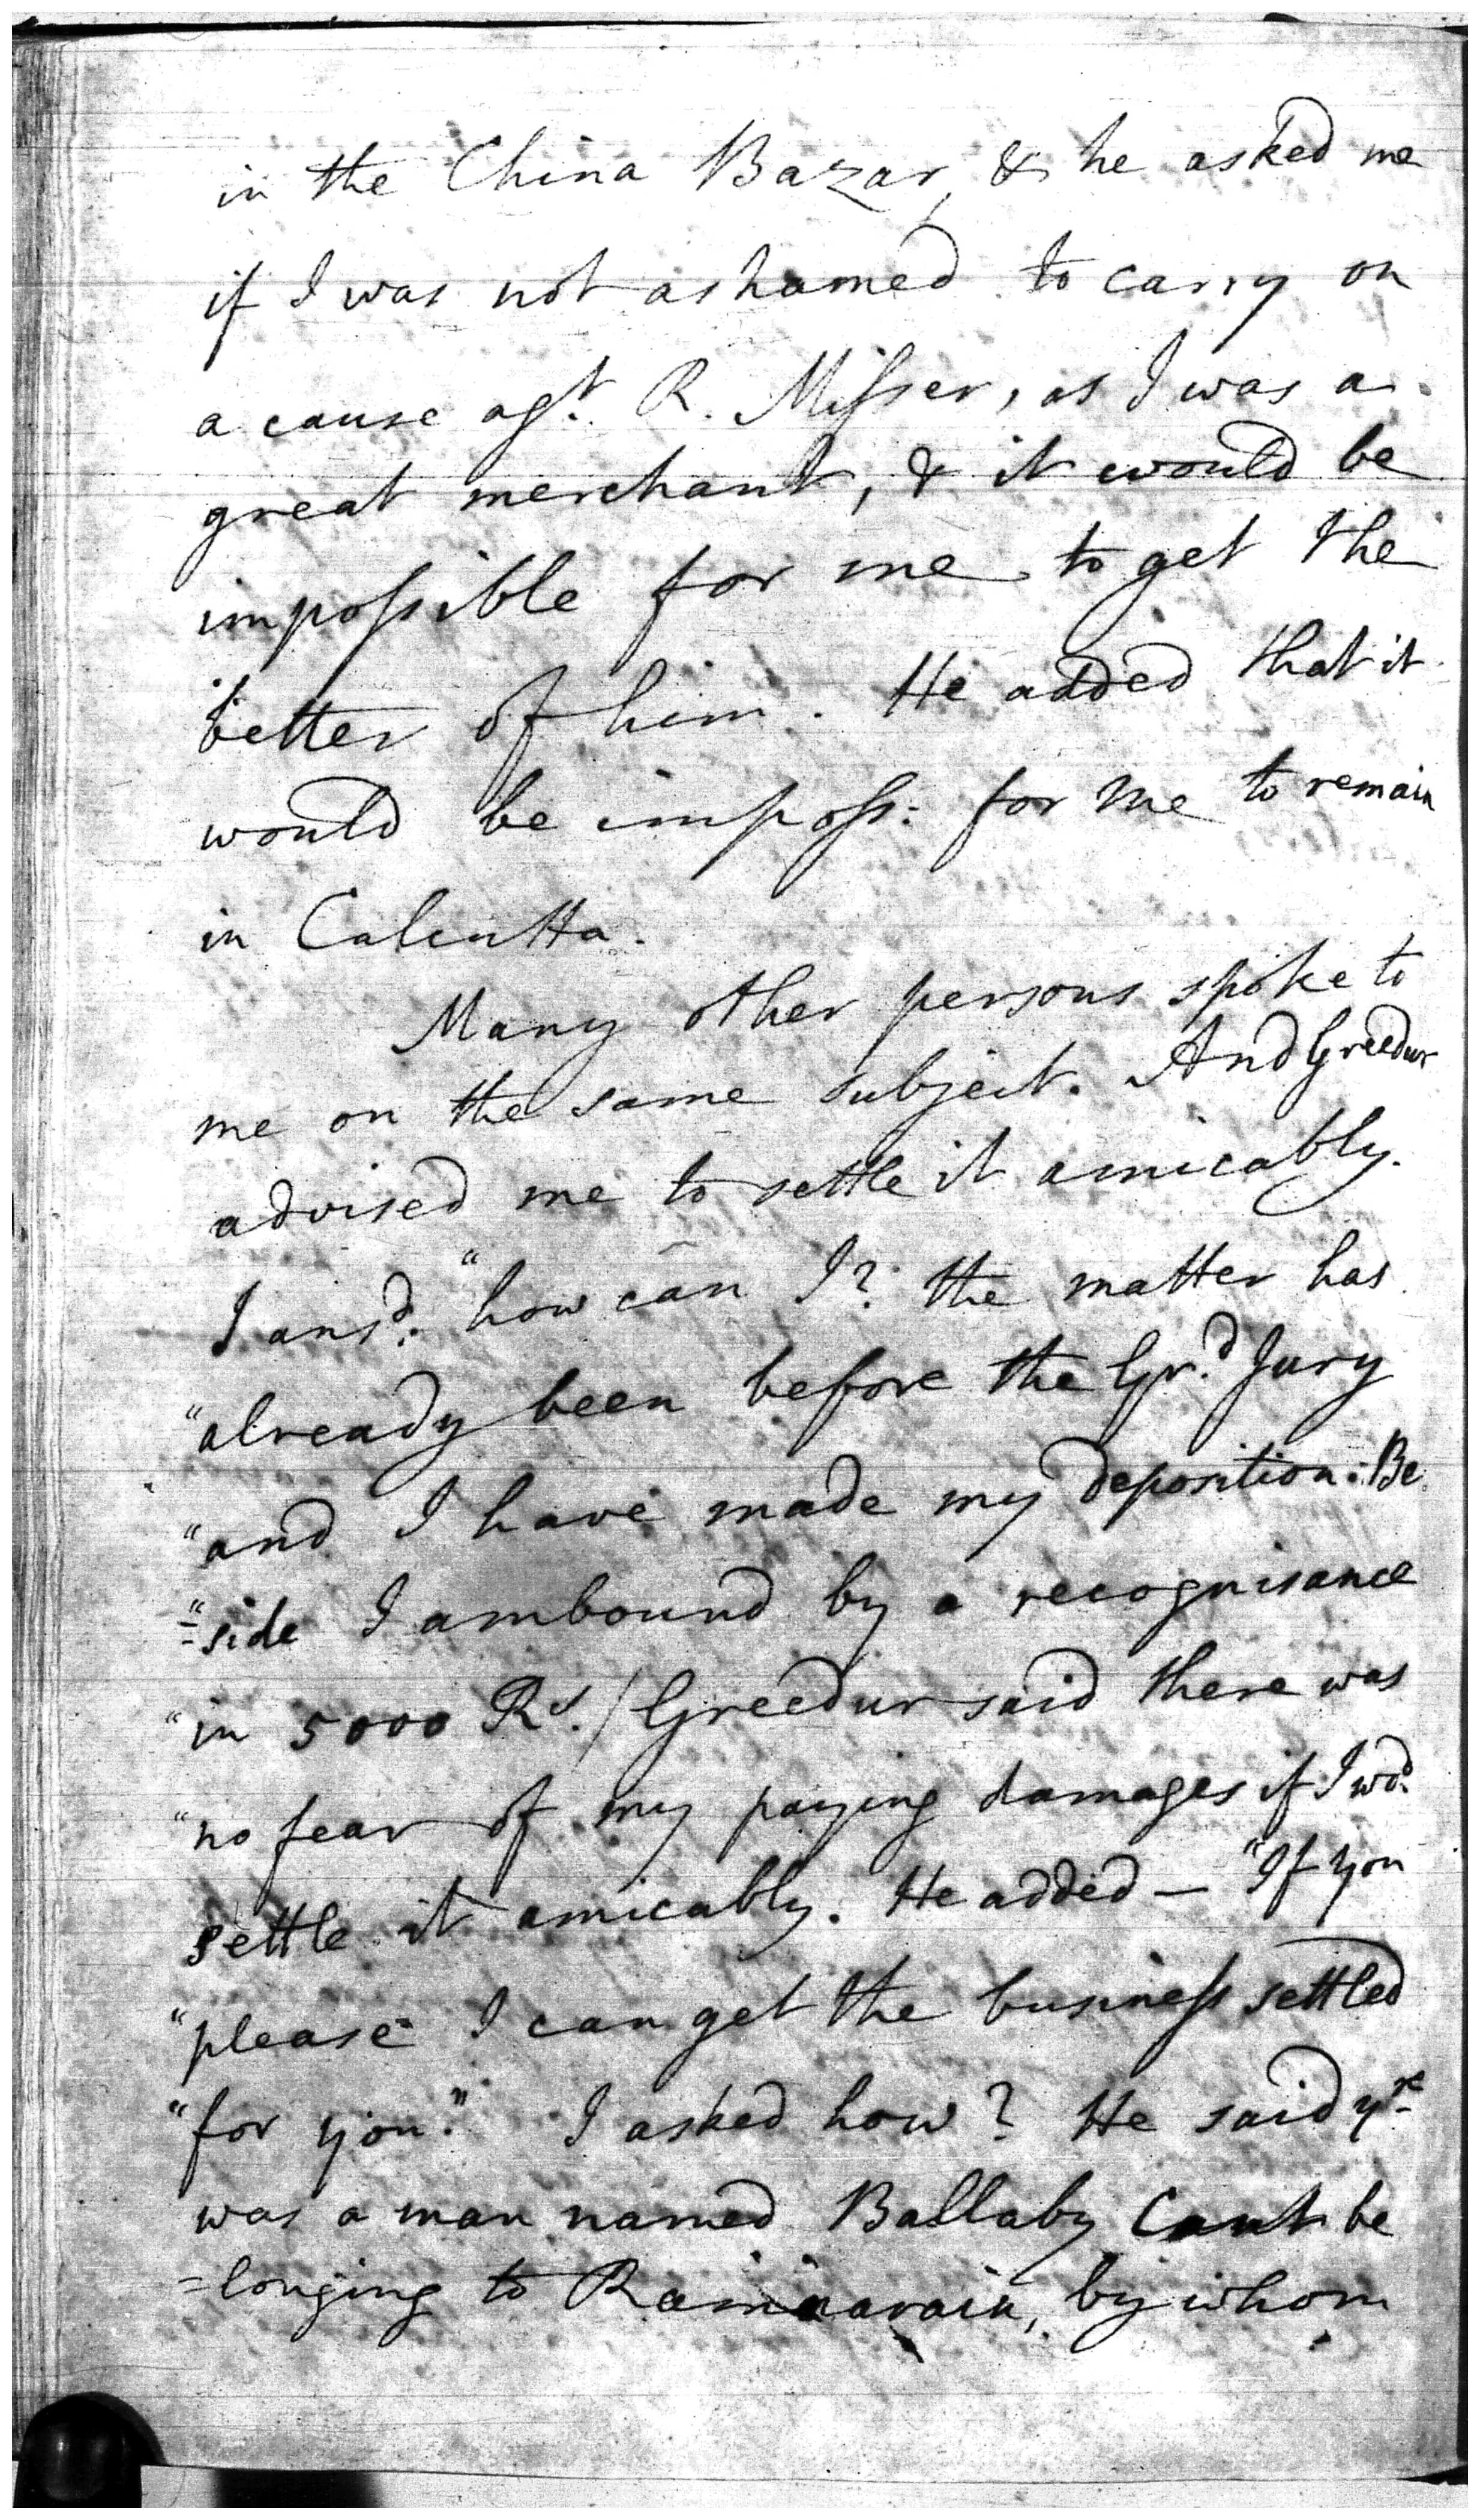 in the China Bazar, & he asked me
if I was not ashamed to carry on
a cause agt. R. Misser, as I was a
great merchant, & it would be
impossible for me to get the
better of him. He added that it
would be imposs: for me to remain
in Calcutta.
Many other persons spoke to
me on the same subject. And Greedur
advised me to settle it amicably.
I ansd. "how can I? the matter has
"already been before the Grd. Jury
"and I have made my deposition: Be
"=side I am bound by a recognisance
"in 5000 Rs./ Greedur said there was
"no fear of my paying damages if I wd.
settle it amicably. He added — "If you
"please I can get the business settled
"for you." I asked how? He said yre
was a man named Ballaby Cant be
=longing to Ramnarain, by whom